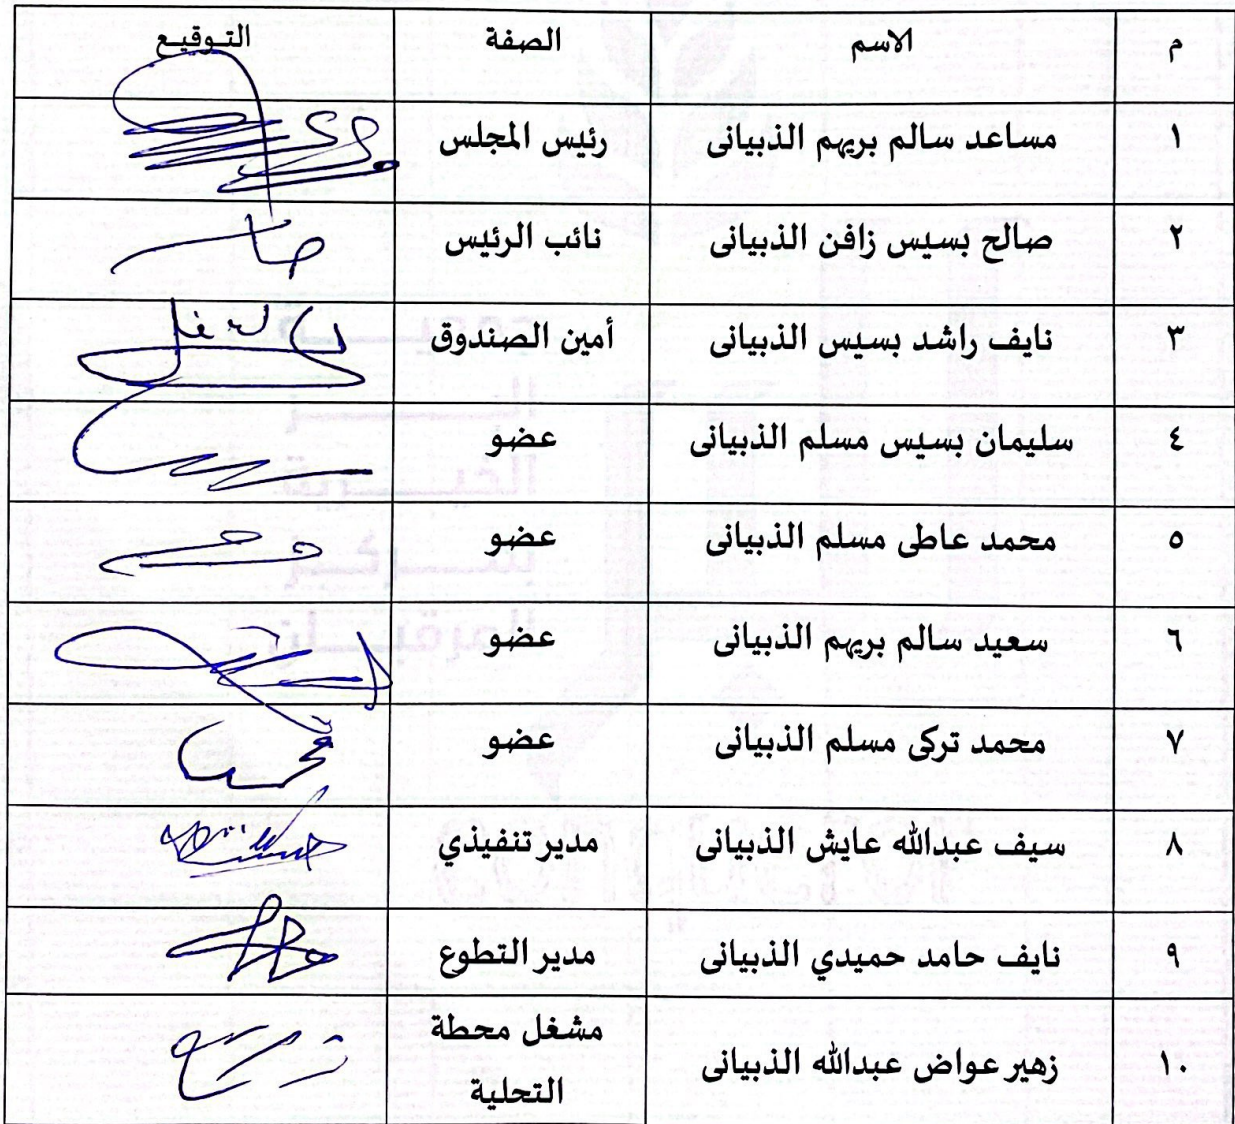 م الاسم الصفة التوقيع
١ مساعد سالم بريهم الذبيانى رئيس المجلس
٢ صالح بسيس زافن الذبيانى نائب الرئيس
٣ نايف راشد بسيس الذبيانى أمين الصندوق
٤ سليمان بسيس مسلم الذبيانى عضو
٥ محمد عاطى مسلم الذبيانى عضو
٦ سعيد سالم بريهم الذبيانى عضو
٧ محمد تركى مسلم الذبيانى عضو
٨ سيف عبدالله عايش الذبيانى مدير تنفيذي
٩ نايف حامد حميدي الذبيانى مدير التطوع
١٠ زهير عواض عبدالله الذبيانى مشغل محطة
التحلية